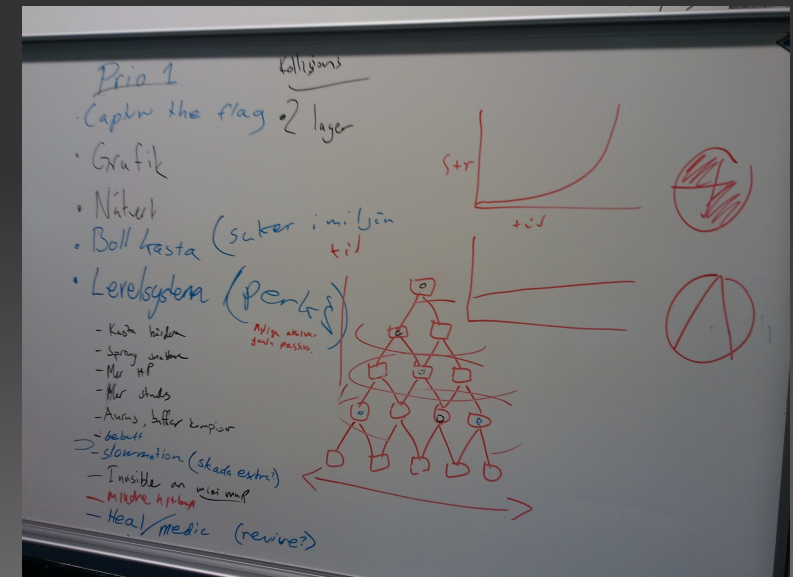 Prio 1
Kollisions
· Capture the flag
· 2 lager
· Grafik
· Nätverk
· Boll kasta (saker i miljön
· Levelsystem (perks)
tid
- Kasta hårdare
- Springa snabbare
- Mer HP
- Mer studs
- Auras, buffar kompisar
- debuff
?-slowmotion (skada extra?)
- Invisible on minimap
- Mindre hitbox
- Heal/medic (revive?)
Str
tid